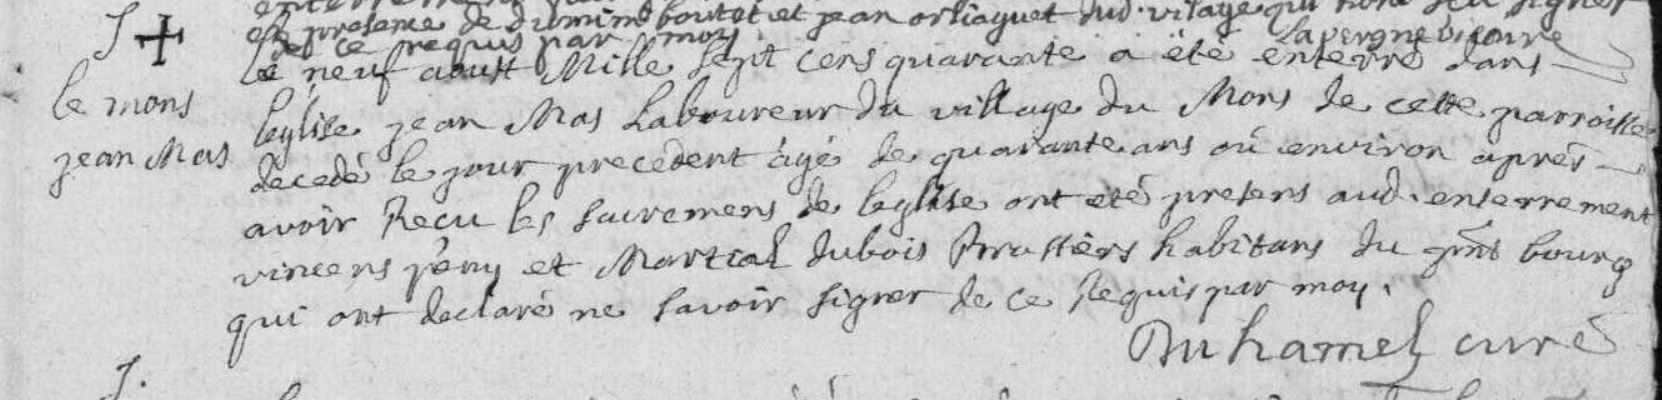 en presence de dumimo boutet et jean orliaguet dud. vilage qui n'ont seu signer
de ce requis par moy.
Lavergne vicaire
J
Le neuf aoust Mille sept cens quarante a été enterré dans
le mons
leglise jean Mas Laboureur du village du Mons de cette parroisse
jean Mas
decedé le jour precedent âgé de quarante ans ou environ aprés
avoir Recu les sacremens de leglise ont été presens aud. enterrement
vincens peny et Martial dubois habitans du pnt bourg
qui ont declaré ne savoir signer de ce Requis par moy.
Duhamel curé
J.